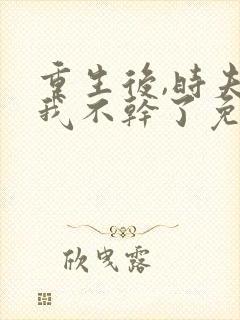 重生後,時夫
我不幹了免
欣曳露